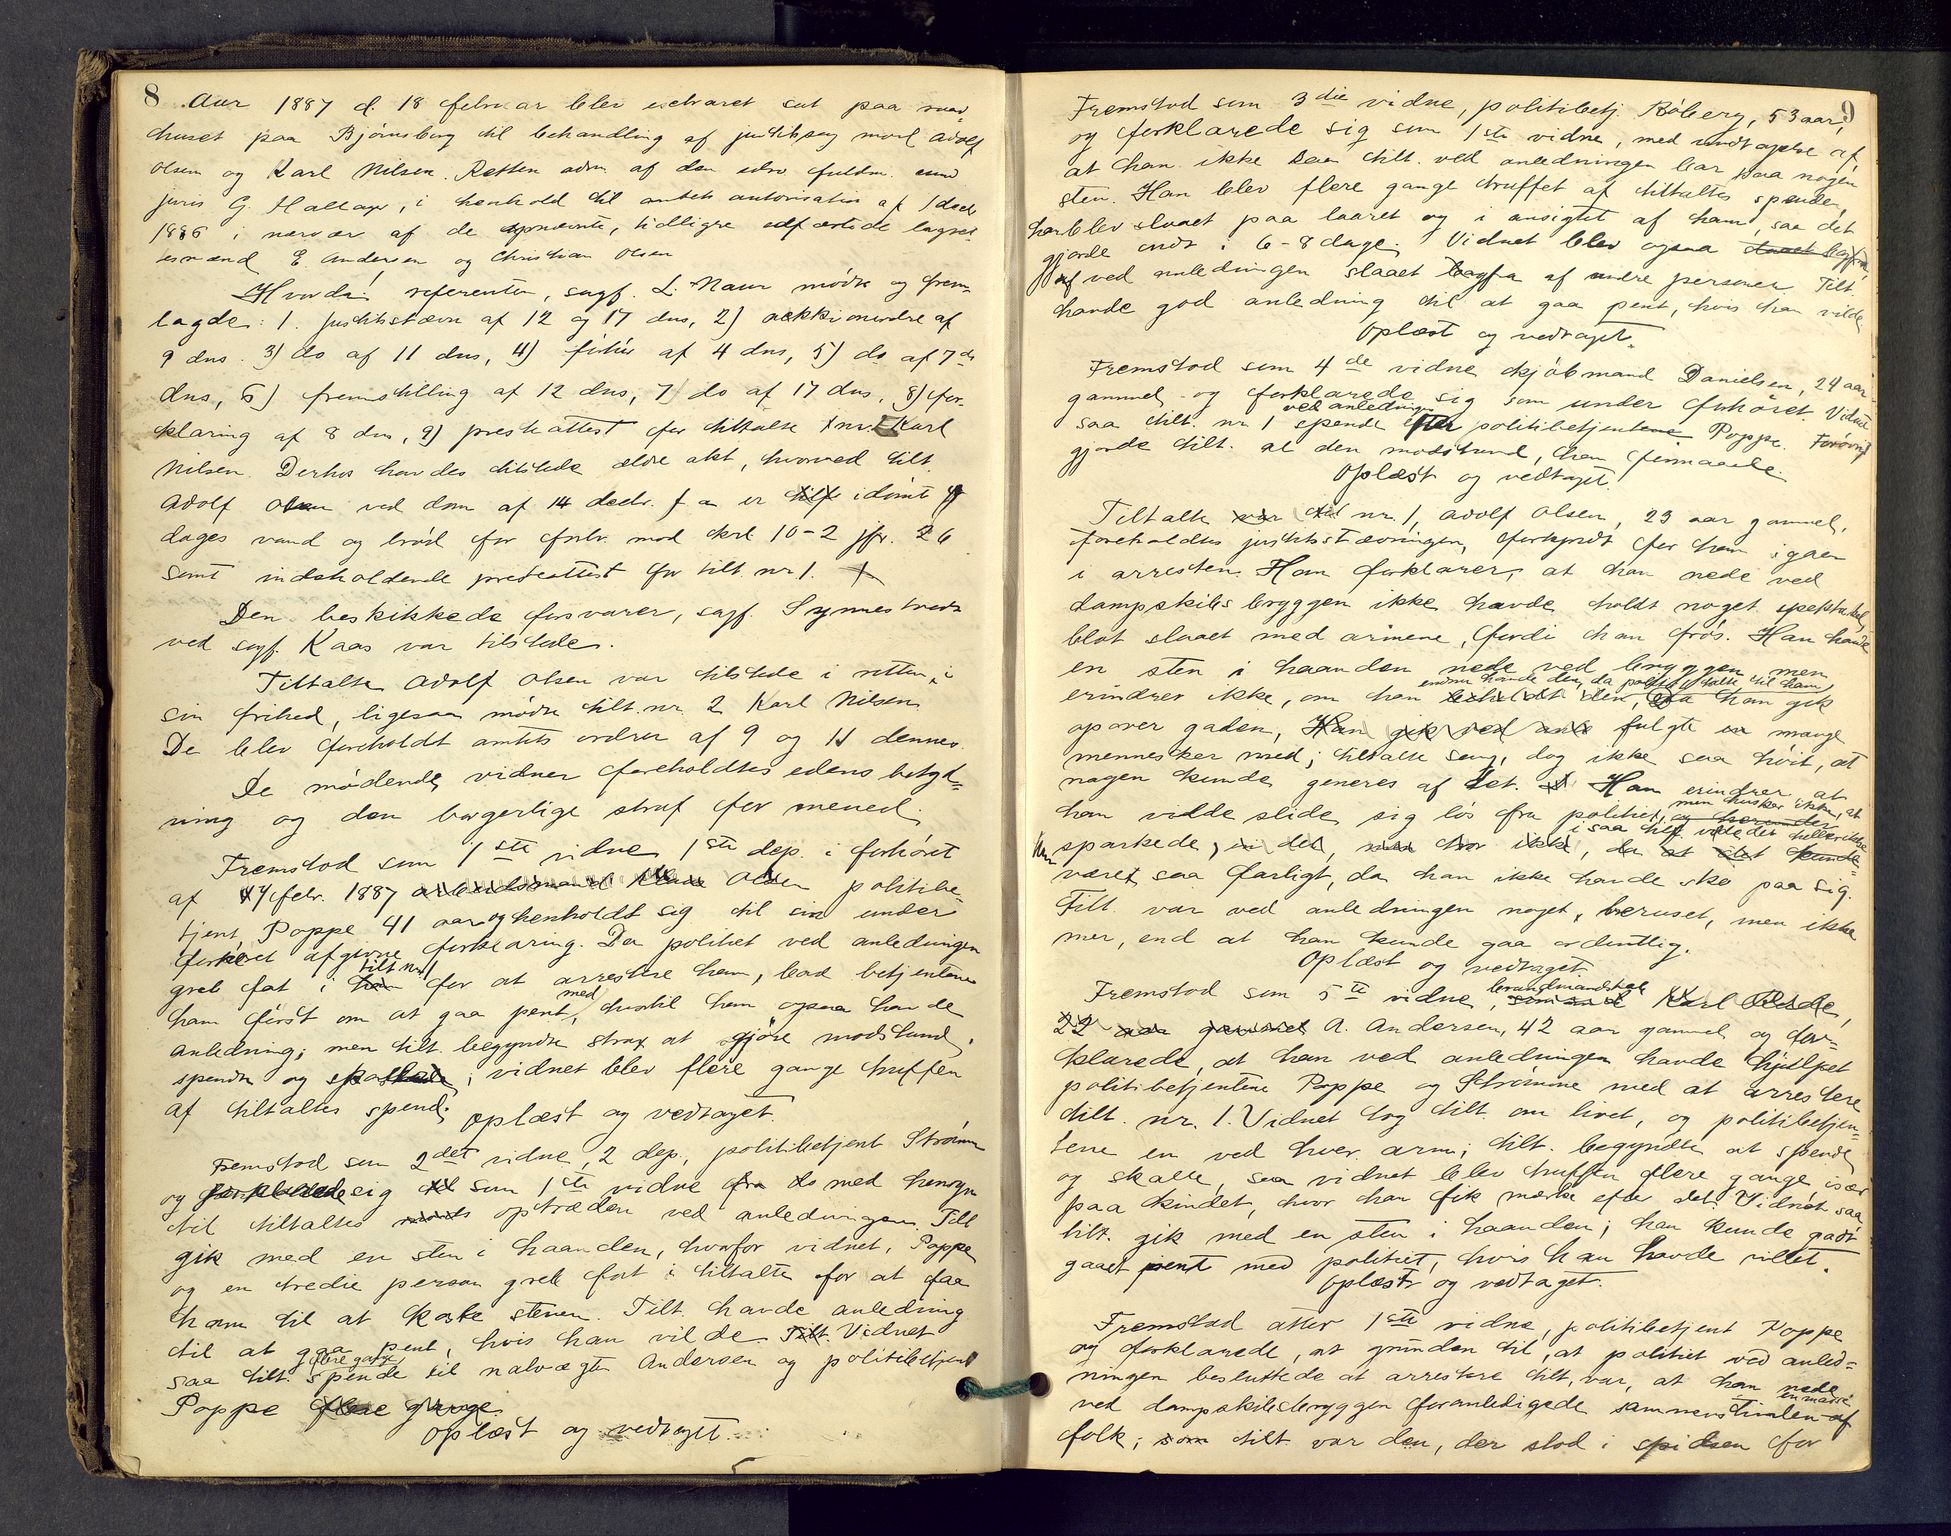 8
Aar 1887 d. 18 februar blev extraret sat paa raad
huset paa Bjørnsborg til behandling af justitssag mod Adolf
Olsen og Karl Nilsen. Retten adm. af den edsv fuldm. cand
juris G. Hallager, i henhold til amtets autorisation af 1 decbr
1886 i nærvær af de opnævnte, tidligre edfæstede lagret-
tesmænd E Andersen og Christian Olsen
Hvorda! referenten, sagf. L. Naur mødte og frem-
lagde: 1. justitsstævn af 12 og 17 dns, 2) aktionsordre af
9 dns. 3) do af 11 dns, 4) forhør af 4 dns, 5) do af 7de
dns, 6) fremstilling af 12 dns, 7) do af 17 dns, 8) for-
klaring af 8 dns, 9) presteattest for tiltalte nr. 2 Karl
Nilsen. Derhos havdes tilstede ældre akt, hvorved tilt.
Adolf Olsen ved dom af 14 decbr. f. a. er idømt
dages vand og brød for forbr. mod krl. 10-2 jfr. 26
samt indeholdende presteattest for tilt. nr 1.
Den beskikkede forsvarer, sagf. Synnestvedt
ved sagf. Kaas var tilstede.
Tiltalte Adolf Olsen var tilstede i retten, i
sin frihed, ligesaa mødte tilt. nr. 2 Karl Nilsen
De blev foreholdt amtets ordrer af 9 og 11 dennes.
De mødende vidner foreholdtes edens betyd-
ning og den borgerlige straf for mened.
Fremstod som 1ste vidne 1ste dep. i forhøret
af 4 febr. 1887 arbeidsmand Olsen politibe-
tjent Poppe 41 aar og henholdt sig til sin under
forhøret afgivne forklaring. Da politiet ved anledningen
tilt nr 1
greb fat i ham for at arrestere ham, bad betjentene
med
ham først om at gaa pent, hvortil han ogsaa havde
anledning; men tilt. begyndte strax at gjøre modstand,
spendte og sparkede; vidnet blev flere gange truffen
af tiltaltes spend. Oplæst og vedtaget.
Fremstod som 2det vidne, 2 dep., politibetjent Strømme
og forklarede sig som 1ste vidne fra do med hensyn
til tiltaltes optræden ved anledningen. Tilt
gik med en sten i haanden, hvorfor vidnet, Poppe
og en tredie person greb fat i tiltalte for at faa
ham til at kaste stenen. Tilt. havde anledning
til at gaa pent, hvis han vilde. Tilt. Vidnet
flere gange
saa tilt. spende til natvægter Andersen og politibetjent
Poppe flere gange.
Oplæst og vedtaget.
9
Fremstod som 3die vidne, politibetj. Roberg, 53 aar,
og forklarede sig som 1ste vidne, med undtagelse af,
at han ikke saa tilt. ved anledningen bar paa nogen
sten. Han blev flere gange truffet af tiltaltes spende,
han blev slaaet paa laaret og i ansigtet af ham, saa det
gjorde ondt i 6-8 dage. Vidnet blev ogsaa slaaet bagfra
ved anledningen slaaet bagfra af andre personer. Tilt
havde god anledning til at gaa pent, hvis han vilde
Oplæst og vedtaget.
Fremstod som 4de vidne kjøbmand Danielsen, 24 aar
gammel og forklarede sig som under forhøret. Vidnet
ved anledningen
saa tilt. nr 1 spende efter politibetjentene Poppe. Forøvrigt
gjorde tilt. al den modstand, han formaaede.
Oplæst og vedtaget.
Tiltalte nr. 1, Adolf Olsen, 23 aar gammel,
foreholdtes justitsstævningen, forkyndt for ham igaar
i arresten. Han forklarer, at han nede ved
dampskibsbryggen ikke havde holdt noget spektakel,
blot slaaet med armene, fordi han frøs. Han havde
en sten i haanden nede ved bryggen, men
endnu havde den, da politiet talte til ham
erindrer ikke, om han beholdt den, da han gik
opover gaden, Han gik ved fulgte en mange
mennesker med; tiltalte sang, dog ikke saa høit, at
nogen kunde generes af det. Han erindrer, at
men husker ikke, at
han vilde slide sig løs fra politiet, og herunder
i saa tilf. vilde det heller ikke
han sparkede, da at det kunde
været saa farligt, da han ikke havde sko paa sig.
Tilt. var ved anledningen noget beruset, men ikke
mer, end at han kunde gaa ordentlig.
Oplæst og vedtaget.
brandmandskab
Fremstod som 5te vidne, Karl
22 aar gammel A. Andersen, 42 aar gammel og for-
klarede, at han ved anledningen havde hjulpet
politibetjentene Poppe og Strømme med at arrestere
tilt. nr. 1. Vidnet tog tilt. om livet, og politibetjen-
tene en ved hver arm; tilt. begyndte at spende
og skalle, saa vidnet blev truffen flere gange især
paa kindet, hvor han fik mærke efter det. Vidnet saa
tilt. gik med en sten i haanden; han kunde godt
gaaet pent med politiet, hvis han havde villet.
Oplæst og vedtaget.
Fremstod atter 1ste vidne, politibetjent Poppe
og forklarede, at grunden til, at politiet ved anled-
ningen besluttede at arrestere tilt. var, at han nede
en masse
ved dampskibsbryggen foranledigede sammenstimlen af
folk; som tilt var den, der stod i spidsen for